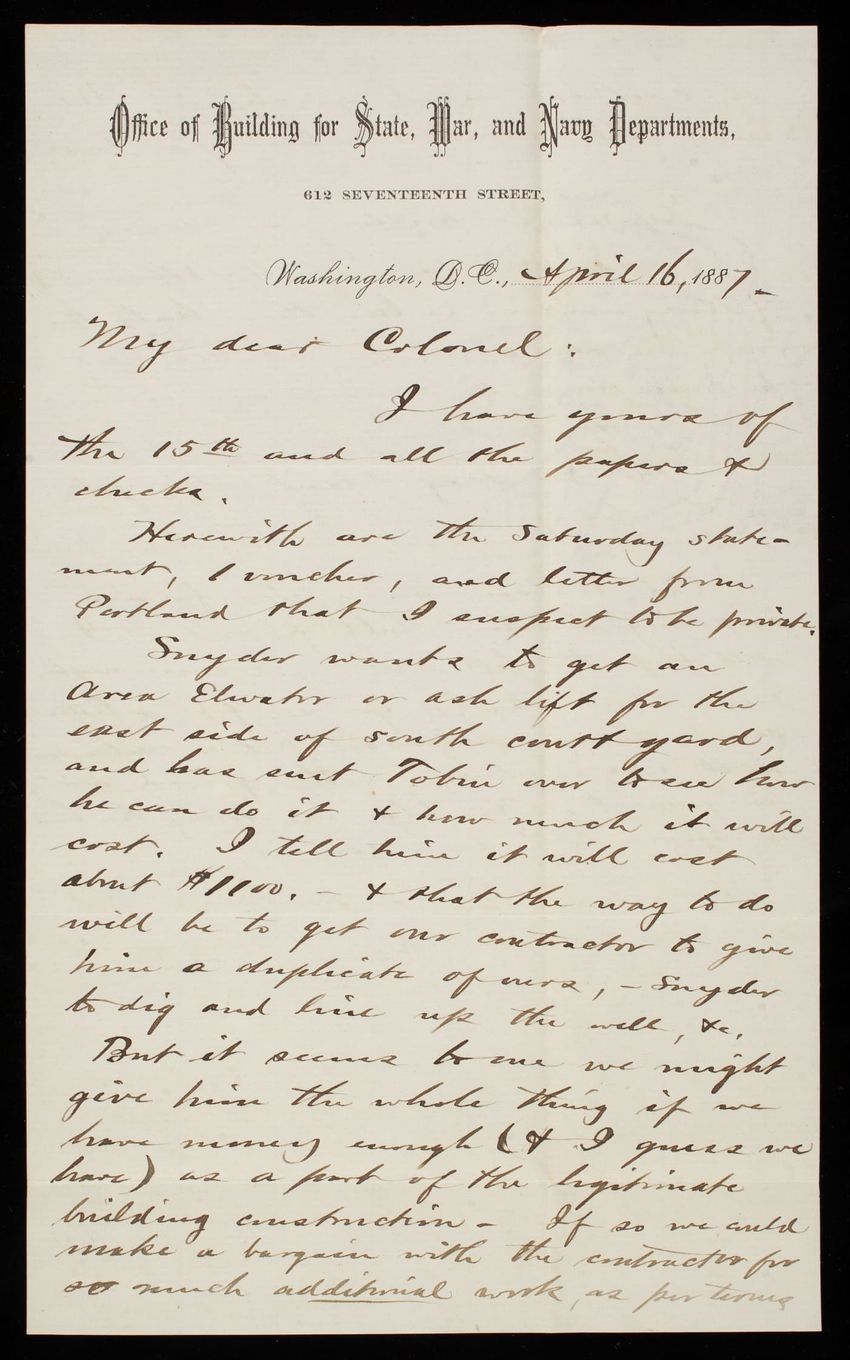 Office of Building for State, War, and Navy Departments,
612 SEVENTEENTH STREET,
Washington, D.C., April 16, 1887.
My dear Colonel:
I have yours of
the 15th and all the papers &
checks.
Herewith are the Saturday state-
ment, 1 voucher, and letter from
Portland that I suspect to be private.
Snyder wants to get an
Area Elevator or ash lift for the
east side of south court yard,
and has sent Tobin over to see how
he can do it & how much it will
cost. I tell him it will cost
about $1100. - & that the way to do
will be to get our contractor to give
him a duplicate of ours, - Snyder
to dig and line up the well, &c.
But it seems to me we might
give him the whole thing if we
have money enough (& I guess we
have) as a part of the legitimate
building construction - If so we could
make a bargain with the contractor for
so much additional work, as per terms